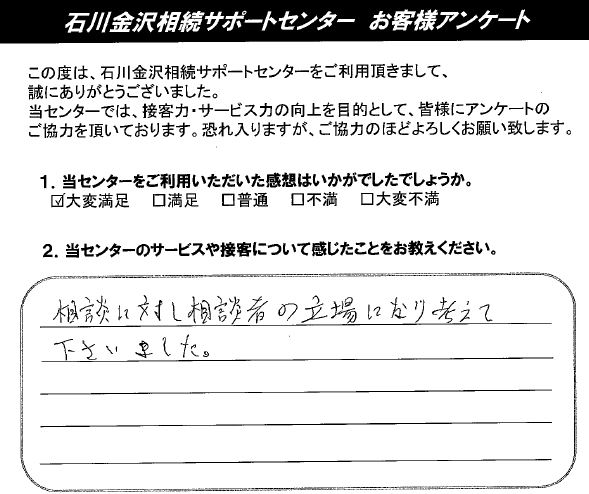 石川金沢相続サポートセンター お客様アンケート
この度は、石川金沢相続サポートセンターをご利用頂きまして、
誠にありがとうございました。
当センターでは、接客力・サービス力の向上を目的として、皆様にアンケートの
ご協力を頂いております。恐れ入りますが、ご協力のほどよろしくお願い致します。
1. 当センターをご利用いただいた感想はいかがでしたでしょうか。
☑大変満足 □満足 □普通 □不満 □大変不満
2. 当センターのサービスや接客について感じたことをお教えください。
相談に対し相談者の立場になり考えて
下さいました。